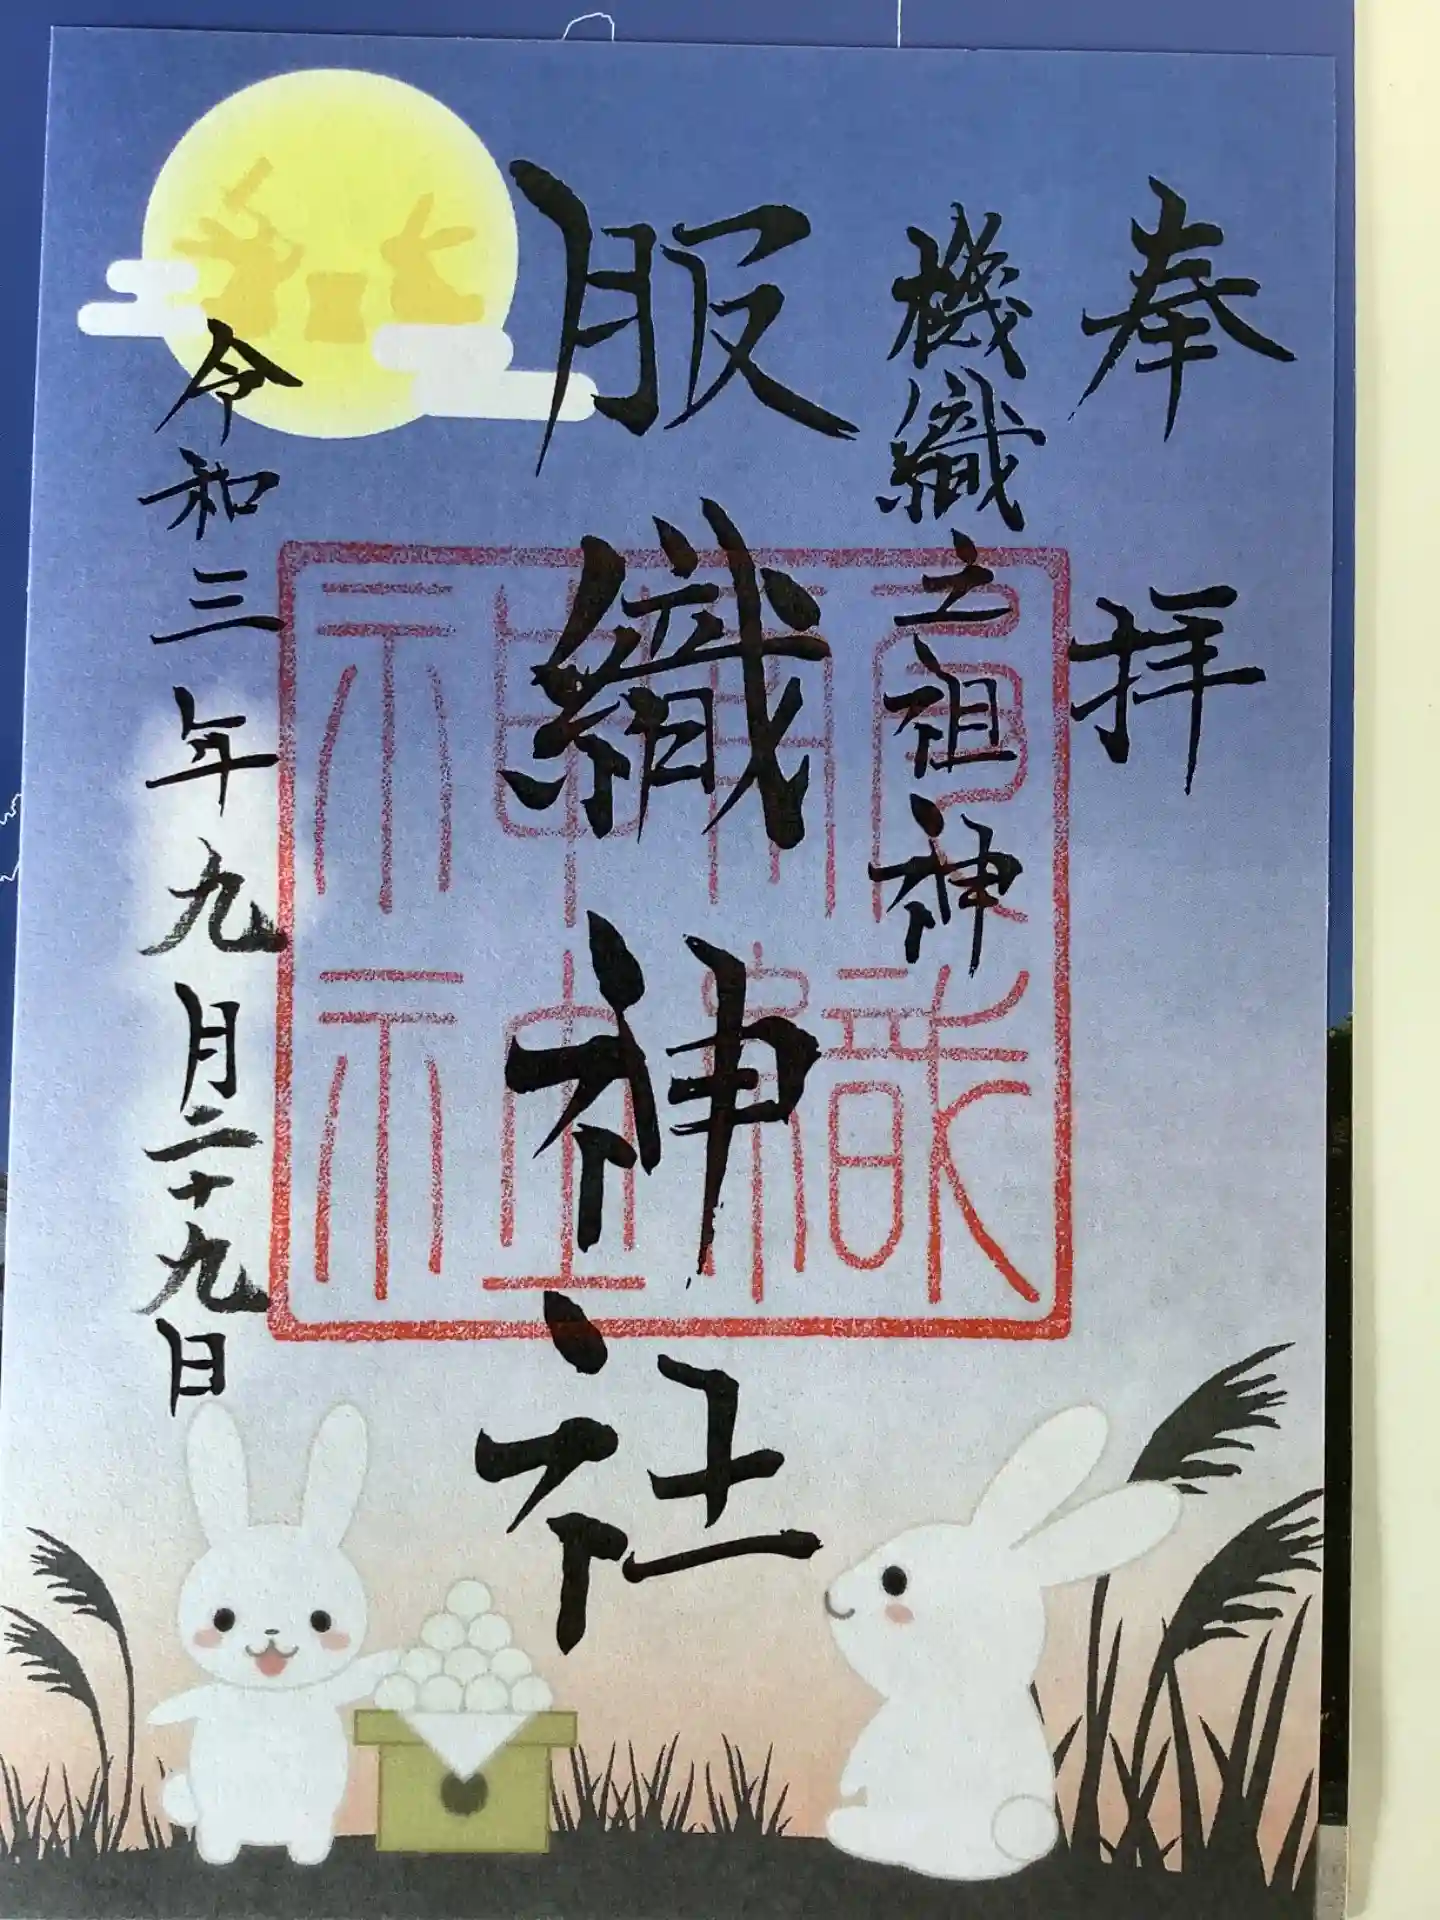 奉拝
機織之祖神
服織神社
令和三年九月二十九日